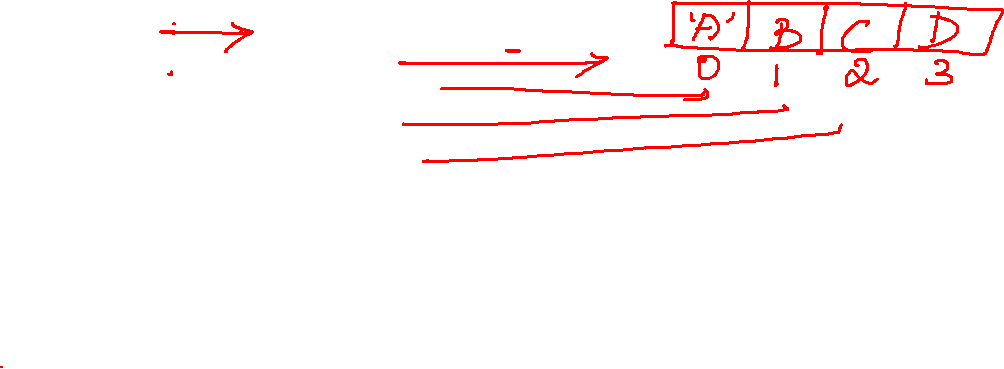 'A' B C D
0 1 2 3